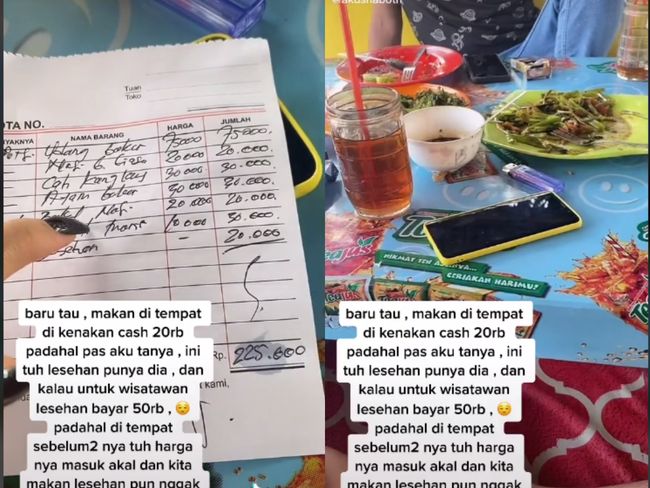 Tuan
Toko
NOTA NO.
BANYAKNYA NAMA BARANG HARGA JUMLAH
Udang bakar 75000 75000.
20000 20.000
Cah Kangkung 30000 30.000
Ayam bakar 30000 30.000
20000 20.000
10000 30.000
Lesehan — 20.000
Rp. 225.000
kami,
baru tau , makan di tempat
di kenakan cash 20rb
padahal pas aku tanya , ini
tuh lesehan punya dia , dan
kalau untuk wisatawan
lesehan bayar 50rb , 😔
padahal di tempat
sebelum2 nya tuh harga
nya masuk akal dan kita
makan lesehan pun nggak
Teajus
NIKMAT TEH ASLINYA
CERIAKAN HARIMU?
baru tau , makan di tempat
di kenakan cash 20rb
padahal pas aku tanya , ini
tuh lesehan punya dia , dan
kalau untuk wisatawan
lesehan bayar 50rb , 😔
padahal di tempat
sebelum2 nya tuh harga
nya masuk akal dan kita
makan lesehan pun nggak